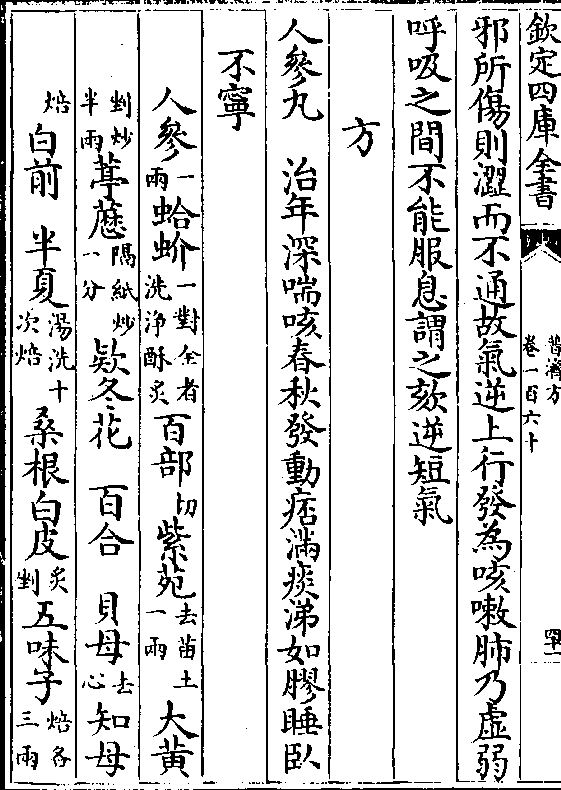 欽定四庫全書 普濟方 卷一百六十
邪所傷則澀而不通故氣逆上行發為咳嗽肺乃虛弱
呼吸之間不能服息謂之欬逆短氣
方
人參丸 治年深喘咳春秋發動痞滿痰涕如膠睡臥
不寧
人參一兩 蛤蚧一對全者洗淨酥炙 百部切 紫苑去苗土一兩 大黄
剉炒半兩 葶藶隔紙炒一分 欵冬花 百合 貝母去心 知母
焙 白前 半夏湯洗十次焙 桑根白皮炙剉 五味子焙各三兩